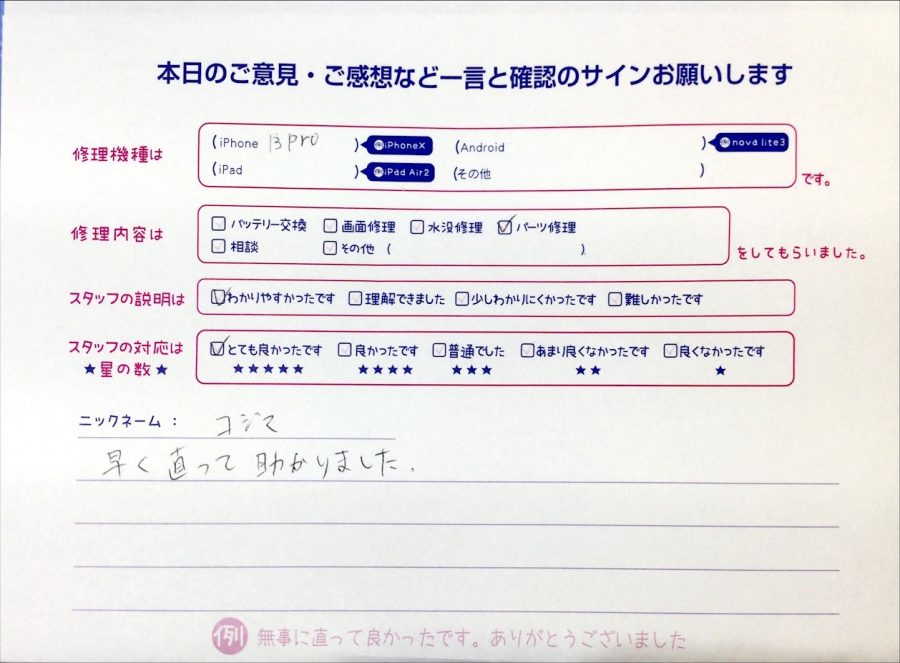 本日のご意見・ご感想など一言と確認のサインお願いします
修理機種は (iPhone 13 pro ) iPhoneX (Android ) nova lite3
(iPad ) iPad Air2 (その他 ) です。
修理内容は □バッテリー交換 □画面修理 □水没修理 ☑パーツ修理
□相談 □その他 ( ) をしてもらいました。
スタッフの説明は ☑わかりやすかったです □理解できました □少しわかりにくかったです □難しかったです
スタッフの対応は ☑とても良かったです □良かったです □普通でした □あまり良くなかったです □良くなかったです
★星の数★ ★★★★★ ★★★★ ★★★ ★★ ★
ニックネーム： コジマ
早く直って助かりました.
例 無事に直って良かったです。ありがとうございました